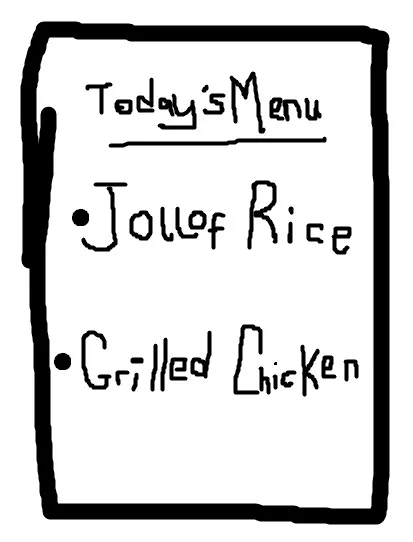 Today's Menu
• Jollof Rice
• Grilled Chicken